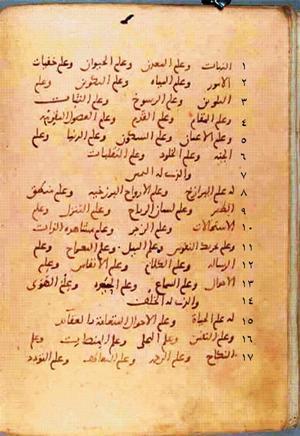 ١ النبات وعلم المعدن وعلم الحيوان وعلم خفيات
٢ الامور وعلم المياه وعلم التكوين وعلم
٣ التلوين وعلم الرسوخ وعلم الثبات
٤ وعلم المقام وعلم القدم وعلم الفصول المقومة
٥ وعلم الاعيان وعلم السكون وعلم الدنيا وعلم
٦ الجنة وعلم الخلود وعلم التقلبات
٧ والذى له
٨ له علم البرازخ وعلم الارواح البرزخية وعلم منطق
٩ الطير وعلم لسان الرياح وعلم التنزل وعلم
١٠ الاستحالات وعلم الزجر وعلم مشاهدة الذات
١١ وعلم تحريك النفوس وعلم الميل وعلم المعراج وعلم
١٢ الرسالة وعلم الكلام وعلم الانفاس وعلم
١٣ الاحوال وعلم السماع وعلم الحيرة وعلم الهوى
١٤ والذى له الخلف
١٥ له علم الحياة وعلم الاحوال المتعلقة بالعقائد
١٦ وعلم النفس وعلم التجلى وعلم المنصات وعلم
١٧ النكاح وعلم الرحم وعلم التعاطف وعلم التودد